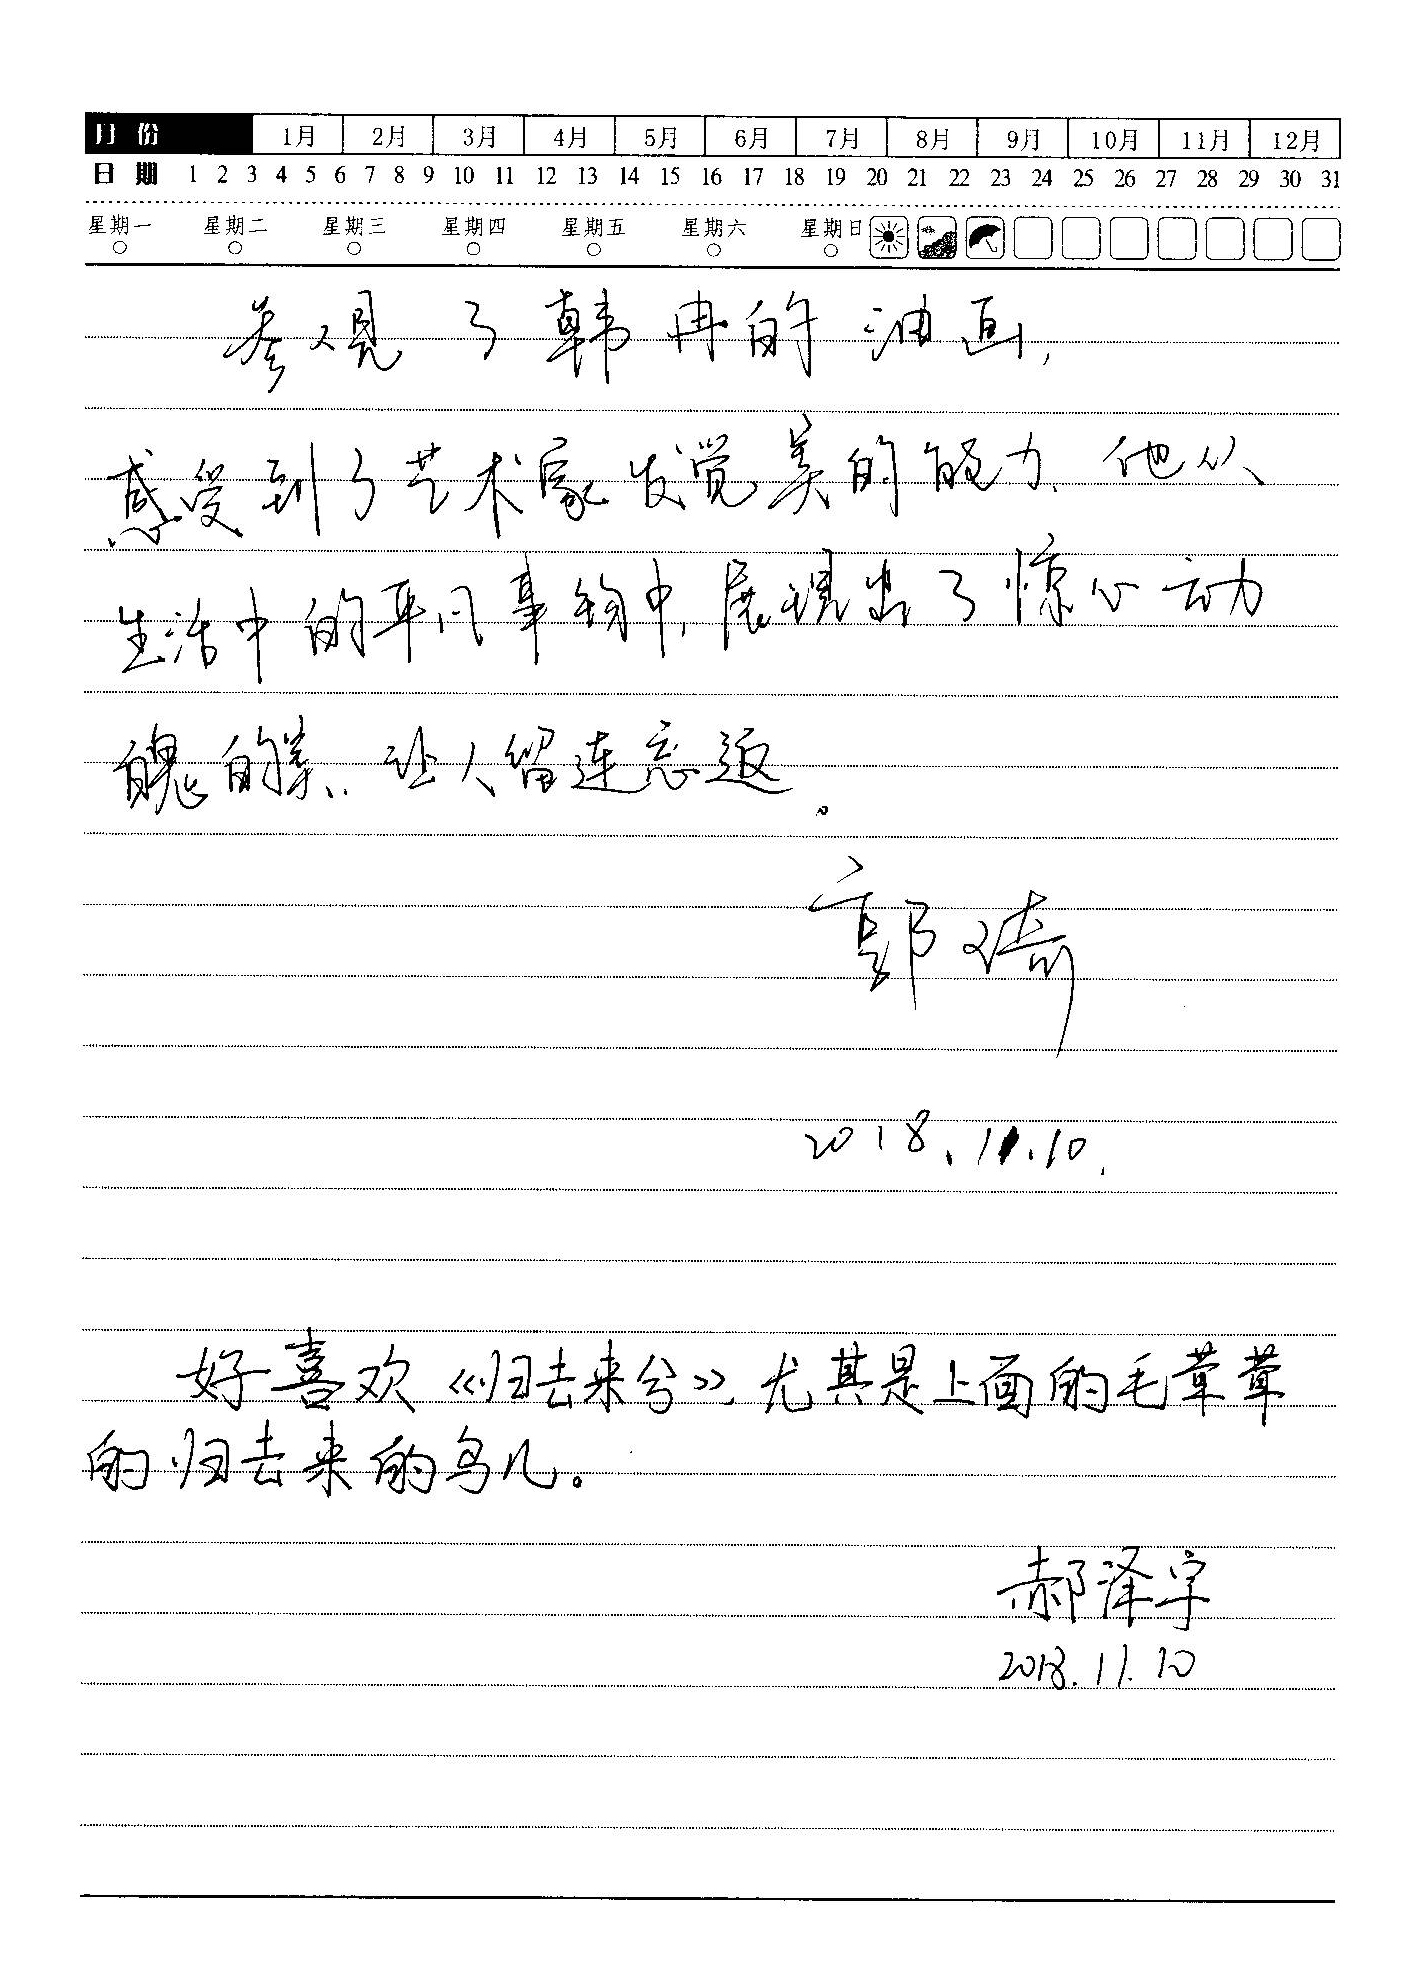 月份 1月 2月 3月 4月 5月 6月 7月 8月 9月 10月 11月 12月
日期 1 2 3 4 5 6 7 8 9 10 11 12 13 14 15 16 17 18 19 20 21 22 23 24 25 26 27 28 29 30 31
星期一 星期二 星期三 星期四 星期五 星期六 星期日
参观了韩冉的油画,
感受到了艺术家发觉美的能力,他从
生活中的平凡事物中,展现出了惊心动
魄的美、让人留连忘返。
郭
2018.11.10.
好喜欢《归去来兮》,尤其是上面的毛茸茸
的归去来的鸟儿。
郝泽宇
2018.11.10